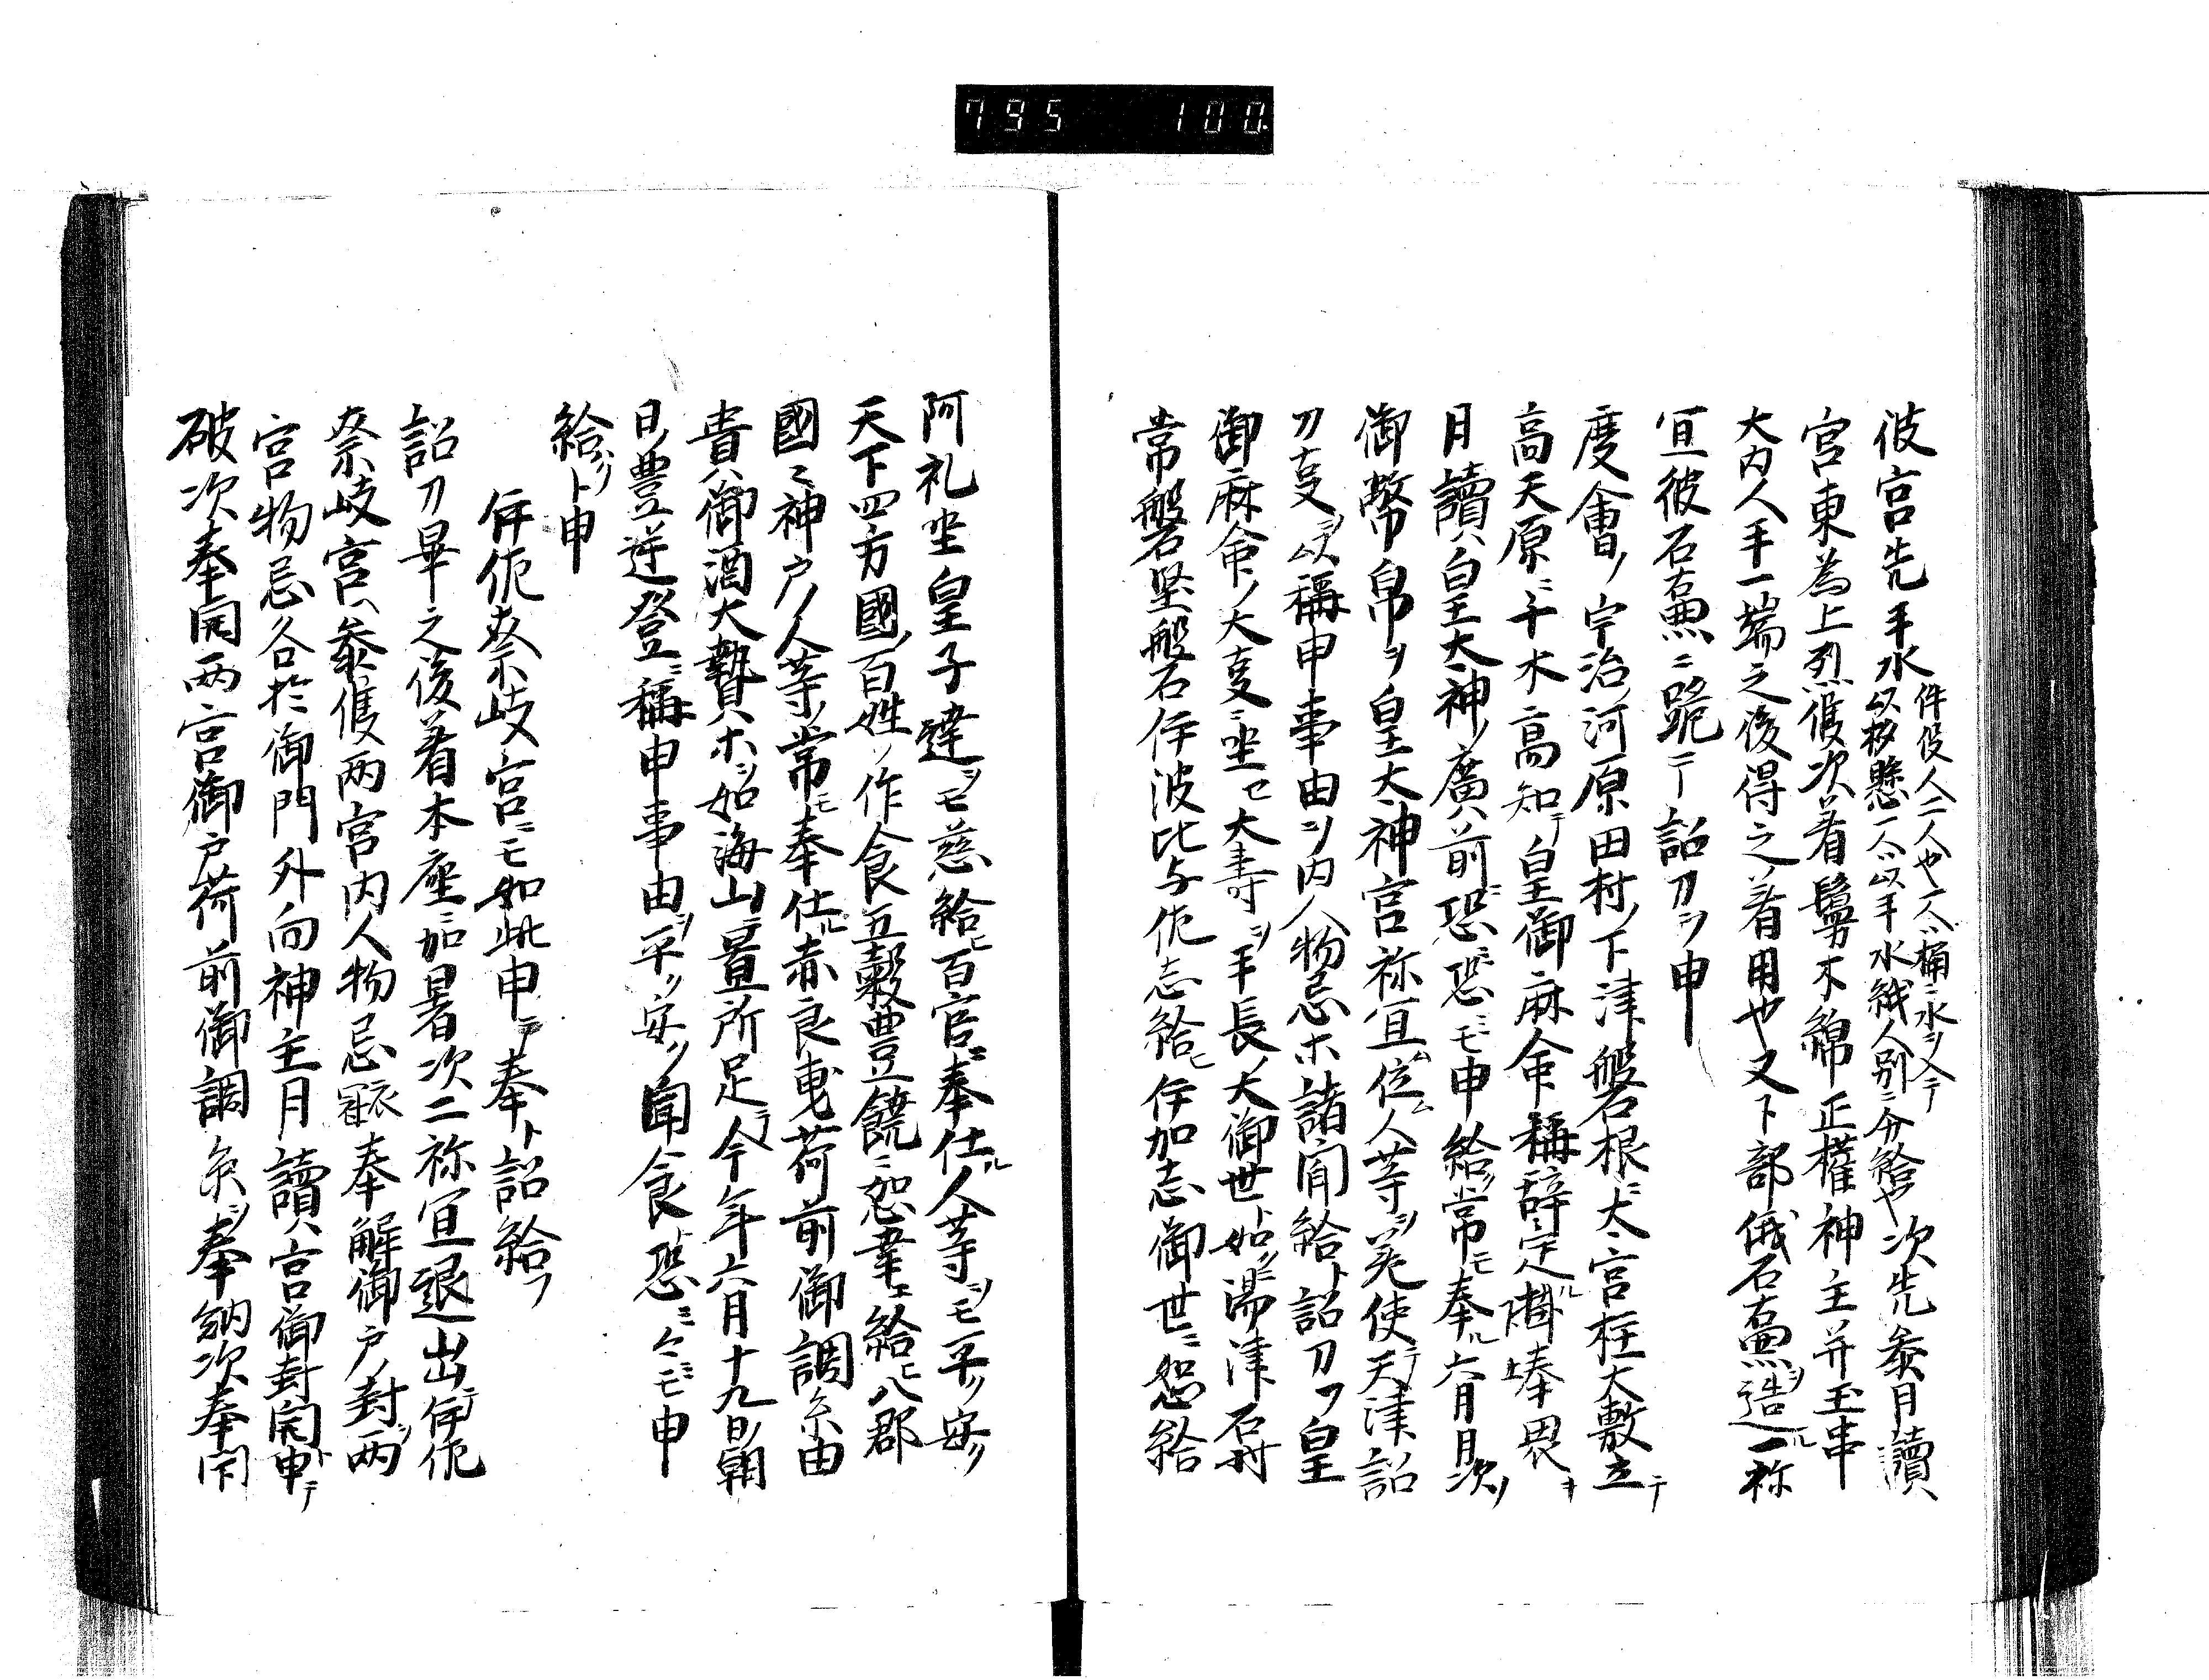 795 100.
彼宮先手水件役人二人也一人ハ桶ニ水ヲ入テ以杉懸一人ハ以手水戟人別ニ分給也次先參月讀
宮東為上烈侯次着鬘木綿正權神主并玉串
大内人手一端之後得之着用也又下部俄石壷ヲ造ル一祢
宜彼石壷ニ跪テ詔刀ヲ申
度會ノ宇治ノ河原田村ノ下津磐根ニ大宮柱大敷立テ
高天原ニ千木高知テ皇御麻命稱辞定ル掛奉畏キ
月讀ハ皇大神ノ廣前ニ恐ミ恐ミモ申給ク常モ奉ル六月月次ノ
御幣帛ヲ皇大神宮祢宜位人等ヲ差使テ天津詔
刀支ヲ以稱申事由ヲ内人物忌ホ諸聞給ト詔刀ヲ皇
御麻命ノ大支ニ坐セ大寿ヲ手長ノ大御世ト如湯津石村
常磐堅磐石伊波比与佐志給ヒ伊加志御世ニ恕給
阿礼坐皇子達ヲモ慈給ヒ百官ニ奉仕ル人等ヲモ平ク安ク
天下四方國ノ百姓ノ作食五穀豊饒ニ恕幸ヱ給ヒ八郡
國ニ神戸ノ人等ノ常モ奉仕ル赤良曳荷前御調糸由
貴ハ御酒大贄ホヲ如海山ニ置所足テ今年六月十九日ノ朝
日ノ豊逆登ニ稱申事由ヲ平ク安ク聞食恐ミ々ミモ申
給ハクト申
伊佐奈岐宮ニモ如此申テ奉ト詔給フ
詔刀畢之後着本座ニ加署次二祢宜退出テ伊佐
奈岐宮ハ參侯両宮内人物忌衣冠奉解御戸ノ封ヲ両
宮物忌各於御門外向神主月讀ハ宮御封開申テ
破次奉開両宮御戸荷前御調糸ヲ奉納次奉閇